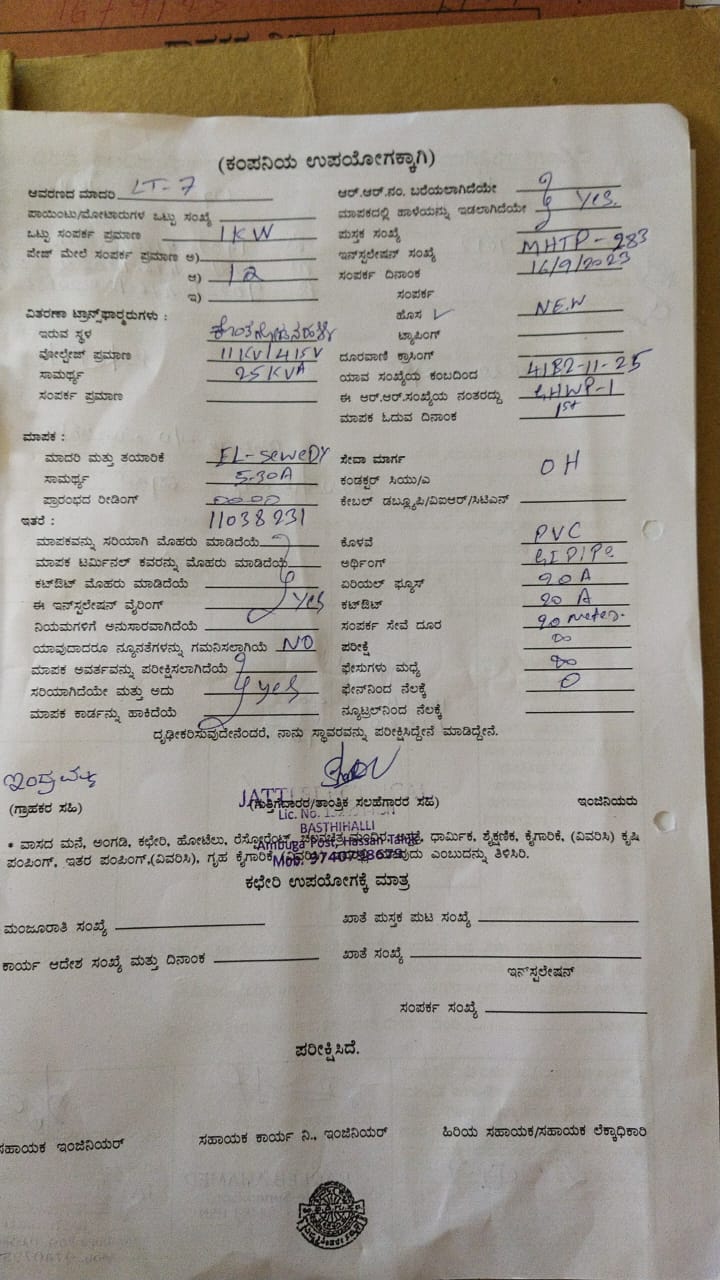 (ಕಂಪನಿಯ ಉಪಯೋಗಕ್ಕಾಗಿ)
ಆವರಣದ ಮಾದರಿ LT-7
ಪಾಯಿಂಟು/ಮೋಟಾರುಗಳ ಒಟ್ಟು ಸಂಖ್ಯೆ
ಒಟ್ಟು ಸಂಪರ್ಕ ಪ್ರಮಾಣ 1KW
ಪೇಜ್ ಮೇಲೆ ಸಂಪರ್ಕ ಪ್ರಮಾಣ ಅ)
ಆ) 12
ಇ)
ವಿತರಣಾ ಟ್ರಾನ್ಸ್‌ಫಾರ್‍ಮರುಗಳು :
ಇರುವ ಸ್ಥಳ
ವೋಲ್ಟೇಜ್ ಪ್ರಮಾಣ 11KV/415V
ಸಾಮರ್ಥ್ಯ 25KVA
ಸಂಪರ್ಕ ಪ್ರಮಾಣ
ಮಾಪಕ :
ಮಾದರಿ ಮತ್ತು ತಯಾರಿಕೆ EL-SeweDY
ಸಾಮರ್ಥ್ಯ 5-30A
ಪ್ರಾರಂಭದ ರೀಡಿಂಗ್ 00.00
ಇತರೆ : 11038231
ಮಾಪಕವನ್ನು ಸರಿಯಾಗಿ ಮೊಹರು ಮಾಡಿದೆಯೆ
ಮಾಪಕ ಟರ್ಮಿನಲ್ ಕವರನ್ನು ಮೊಹರು ಮಾಡಿದೆಯೆ
ಕಟ್‌ಔಟ್ ಮೊಹರು ಮಾಡಿದೆಯೆ
ಈ ಇನ್‌ಸ್ಟಲೇಷನ್ ವೈರಿಂಗ್ yes
ನಿಯಮಗಳಿಗೆ ಅನುಸಾರವಾಗಿದೆಯೆ
ಯಾವುದಾದರೂ ನ್ಯೂನತೆಗಳನ್ನು ಗಮನಿಸಲಾಗಿಯೆ NO
ಮಾಪಕ ಅವರ್ತವನ್ನು ಪರೀಕ್ಷಿಸಲಾಗಿದೆಯೆ
ಸರಿಯಾಗಿದೆಯೇ ಮತ್ತು ಅದು yes
ಮಾಪಕ ಕಾರ್ಡನ್ನು ಹಾಕಿದೆಯೆ
ಆರ್.ಆರ್.ನಂ. ಬರೆಯಲಾಗಿದೆಯೇ
ಮಾಪಕದಲ್ಲಿ ಹಾಳೆಯನ್ನು ಇಡಲಾಗಿದೆಯೇ yes
ಪುಸ್ತಕ ಸಂಖ್ಯೆ
ಇನ್‌ಸ್ಟಲೇಷನ್ ಸಂಖ್ಯೆ MHTP-283
ಸಂಪರ್ಕ ದಿನಾಂಕ 16/9/2023
ಸಂಪರ್ಕ
ಹೊಸ ✓ NEW
ಟ್ಯಾಪಿಂಗ್
ದೂರವಾಣಿ ಕ್ರಾಸಿಂಗ್
ಯಾವ ಸಂಖ್ಯೆಯ ಕಂಬದಿಂದ 4182-11-25
ಈ ಆರ್.ಆರ್.ಸಂಖ್ಯೆಯ ನಂತರದ್ದು
ಮಾಪಕ ಓದುವ ದಿನಾಂಕ 1st
ಸೇವಾ ಮಾರ್ಗ OH
ಕಂಡಕ್ಟರ್ ಸಿಯು/ಎ
ಕೇಬಲ್ ಡಬ್ಲ್ಯೂಪಿ/ವಿಐಆರ್/ಸಿಟಿಎನ್
ಕೊಳವೆ PVC
ಅರ್ಥಿಂಗ್ GIPIPe
ಏರಿಯಲ್ ಫ್ಯೂಸ್ 20 A
ಕಟ್‌ಔಟ್ 20 A
ಸಂಪರ್ಕ ಸೇವೆ ದೂರ 20 meter.
ಪರೀಕ್ಷೆ ∞
ಫೇಸುಗಳು ಮಧ್ಯೆ ∞
ಫೇಸ್‌ನಿಂದ ನೆಲಕ್ಕೆ 0
ನ್ಯೂಟ್ರಲ್‌ನಿಂದ ನೆಲಕ್ಕೆ
ದೃಢೀಕರಿಸುವುದೇನೆಂದರೆ, ನಾನು ಸ್ಥಾವರವನ್ನು ಪರೀಕ್ಷಿಸಿದ್ದೇನೆ ಮಾಡಿದ್ದೇನೆ.
(ಗ್ರಾಹಕರ ಸಹಿ) (ಗುತ್ತಿಗೆದಾರರ/ತಾಂತ್ರಿಕ ಸಲಹೆಗಾರರ ಸಹಿ) ಇಂಜಿನಿಯರು
Lic. No.
BASTHIHALLI
Ambuga Post, Hassan Taluk
Mob: 9740798679
* ವಾಸದ ಮನೆ, ಅಂಗಡಿ, ಕಛೇರಿ, ಹೋಟೆಲು, ರೆಸ್ಟೋರೆಂಟ್, ಚಲನಚಿತ್ರ ಮಂದಿರ, ಧಾರ್ಮಿಕ, ಶೈಕ್ಷಣಿಕ, ಕೈಗಾರಿಕೆ, (ವಿವರಿಸಿ) ಕೃಷಿ
ಪಂಪಿಂಗ್, ಇತರ ಪಂಪಿಂಗ್,(ವಿವರಿಸಿ), ಗೃಹ ಕೈಗಾರಿಕೆ ಎಂಬುದನ್ನು ತಿಳಿಸಿರಿ.
ಕಛೇರಿ ಉಪಯೋಗಕ್ಕೆ ಮಾತ್ರ
ಮಂಜೂರಾತಿ ಸಂಖ್ಯೆ
ಕಾರ್ಯ ಆದೇಶ ಸಂಖ್ಯೆ ಮತ್ತು ದಿನಾಂಕ
ಖಾತೆ ಪುಸ್ತಕ ಪುಟ ಸಂಖ್ಯೆ
ಖಾತೆ ಸಂಖ್ಯೆ
ಇನ್‌ಸ್ಟಲೇಷನ್
ಸಂಪರ್ಕ ಸಂಖ್ಯೆ
ಪರೀಕ್ಷಿಸಿದೆ.
ಸಹಾಯಕ ಇಂಜಿನಿಯರ್ ಸಹಾಯಕ ಕಾರ್ಯ ನಿ., ಇಂಜಿನಿಯರ್ ಹಿರಿಯ ಸಹಾಯಕ/ಸಹಾಯಕ ಲೆಕ್ಕಾಧಿಕಾರಿ